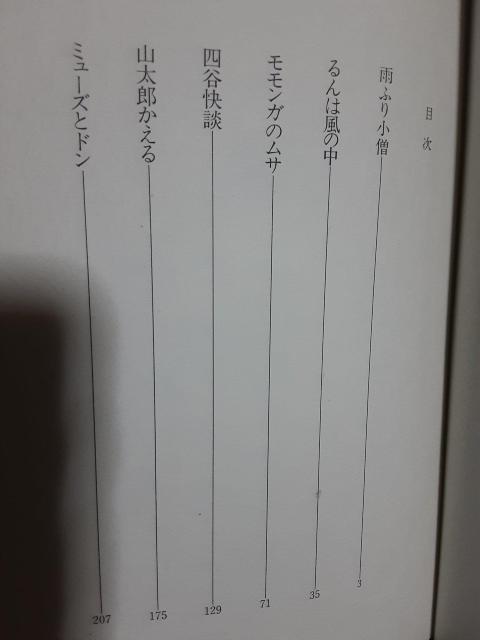 目次
雨ふり小僧 3
るんは風の中 35
モモンガのムサ 71
四谷快談 129
山太郎かえる 175
ミューズとドン 207